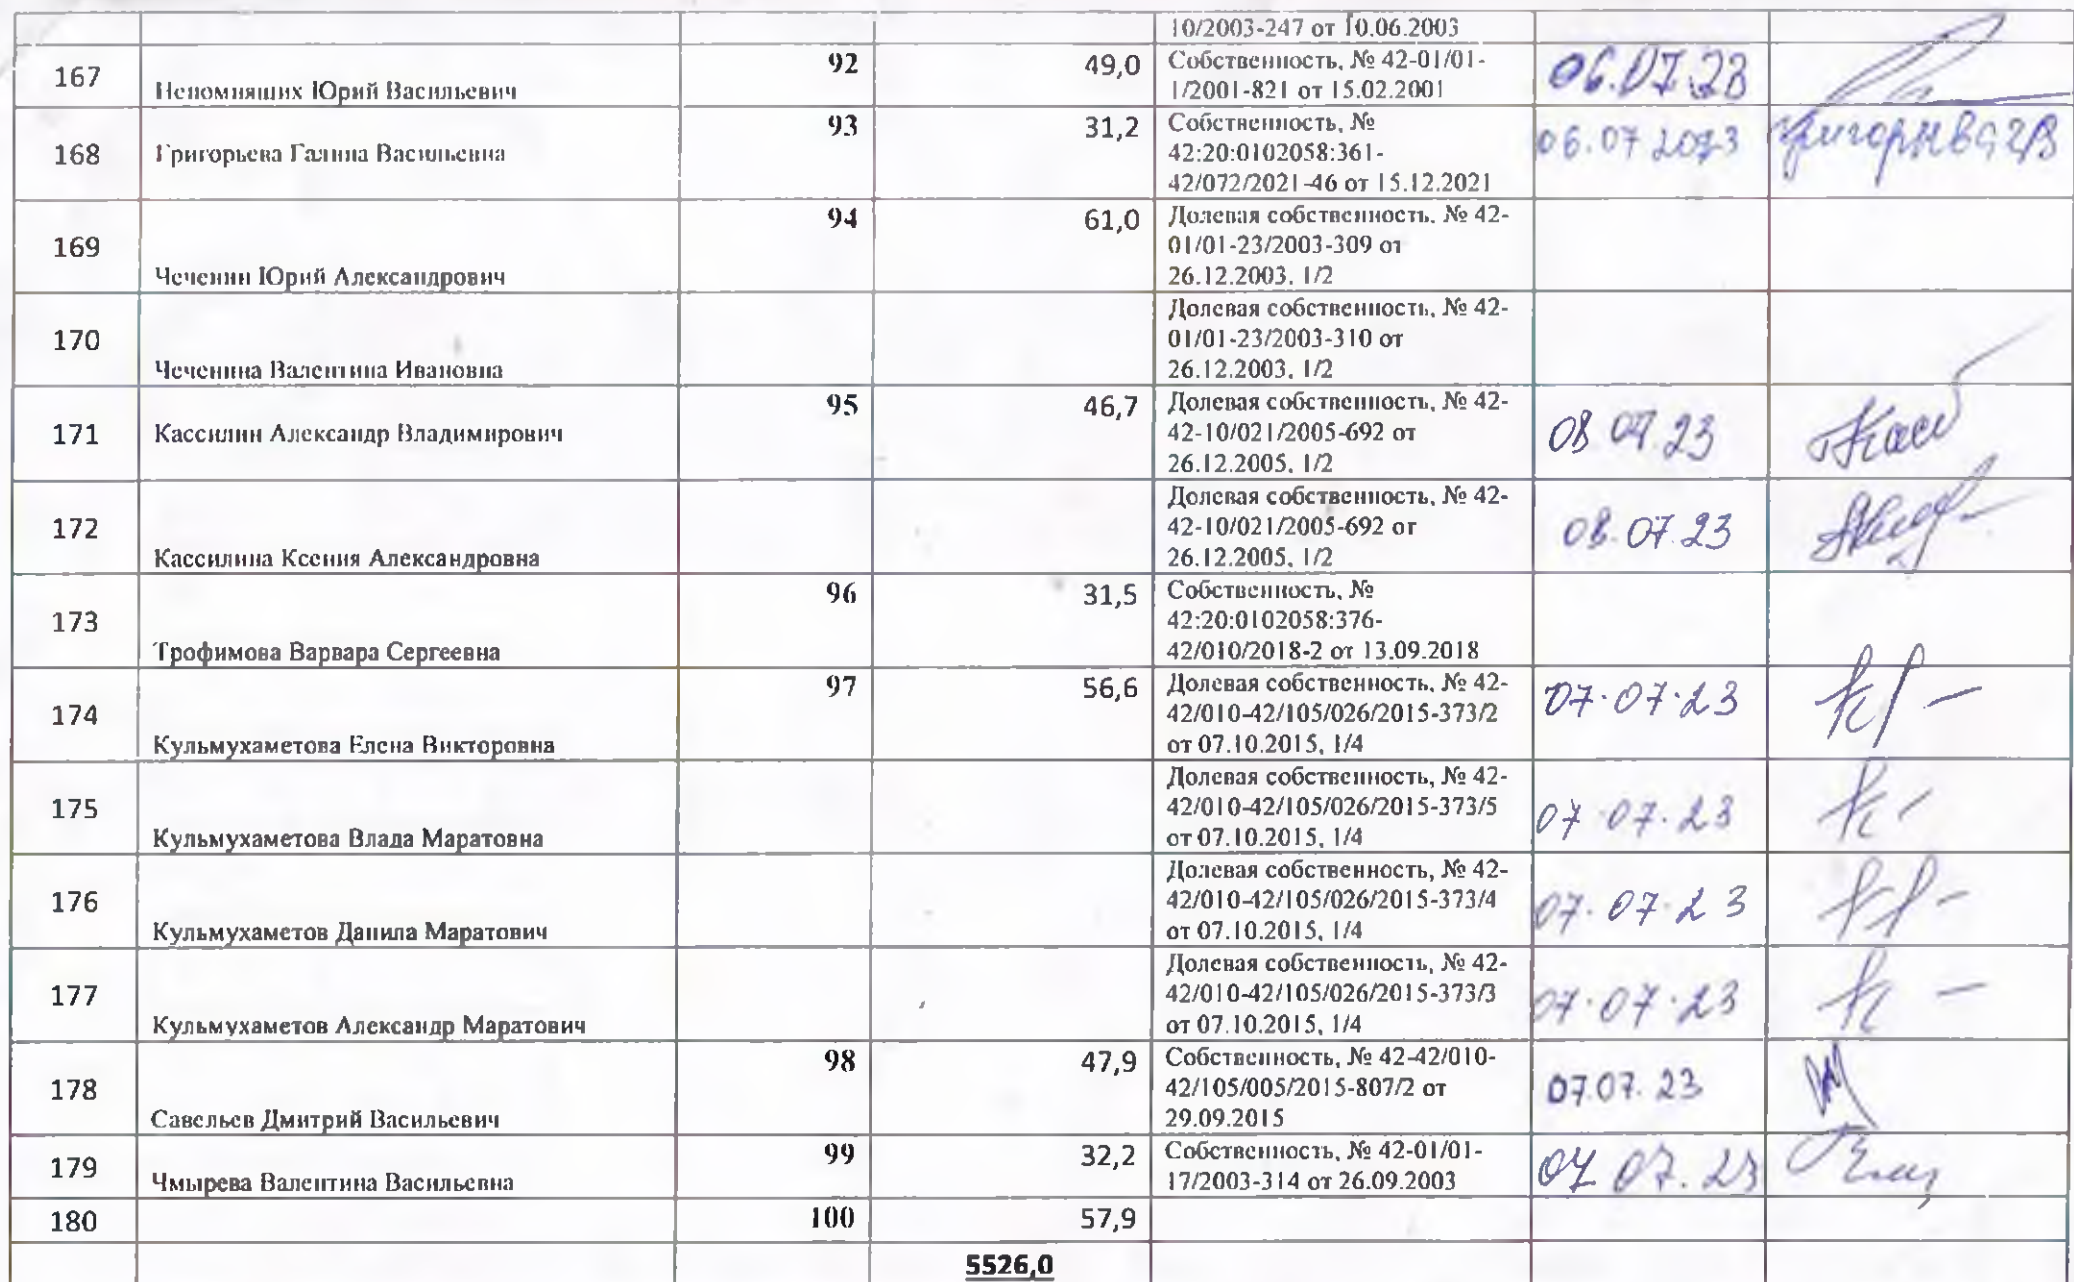 10/2003-247 от 10.06.2003
167 Непомнящих Юрий Васильевич 92 49,0 Собственность, № 42-01/01-
1/2001-821 от 15.02.2001 06.07.23
168 Григорьева Галина Васильевна 93 31,2 Собственность, №
42:20:0102058:361-
42/072/2021-46 от 15.12.2021 06.07 2023
169 Чеченин Юрий Александрович 94 61,0 Долевая собственность, № 42-
01/01-23/2003-309 от
26.12.2003, 1/2
170 Чеченина Валентина Ивановна Долевая собственность, № 42-
01/01-23/2003-310 от
26.12.2003, 1/2
171 Кассилин Александр Владимирович 95 46,7 Долевая собственность, № 42-
42-10/021/2005-692 от
26.12.2005, 1/2 08 07.23
172 Кассилина Ксения Александровна Долевая собственность, № 42-
42-10/021/2005-692 от
26.12.2005, 1/2 08.07.23
173 Трофимова Варвара Сергеевна 96 31,5 Собственность, №
42:20:0102058:376-
42/010/2018-2 от 13.09.2018
174 Кульмухаметова Елена Викторовна 97 56,6 Долевая собственность, № 42-
42/010-42/105/026/2015-373/2
от 07.10.2015, 1/4 07.07.23
175 Кульмухаметова Влада Маратовна Долевая собственность, № 42-
42/010-42/105/026/2015-373/5
от 07.10.2015, 1/4 07.07.23
176 Кульмухаметов Данила Маратович Долевая собственность, № 42-
42/010-42/105/026/2015-373/4
от 07.10.2015, 1/4 07.07.23
177 Кульмухаметов Александр Маратович Долевая собственность, № 42-
42/010-42/105/026/2015-373/3
от 07.10.2015, 1/4 07.07.23
178 Савельев Дмитрий Васильевич 98 47,9 Собственность, № 42-42/010-
42/105/005/2015-807/2 от
29.09.2015 07.07.23
179 Чмырева Валентина Васильевна 99 32,2 Собственность, № 42-01/01-
17/2003-314 от 26.09.2003 07 07.23
180 100 57,9
5526,0